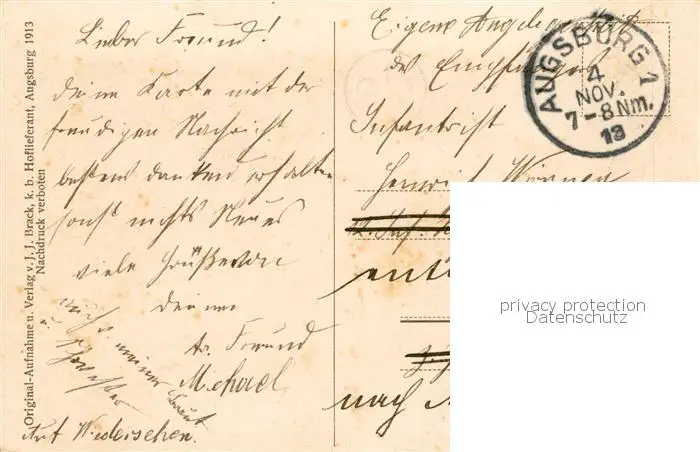 Original-Aufnahme u. Verlag v. J. J. Brack, k. b. Hoflieferant, Augsburg 1913
Nachdruck verboten
Lieber Freund!
deine Karte mit der
freudigen Nachricht
bestens dankend erhalten
sonst nichts Neues
viele Grüße von
deinem
tr. Freund
Michael
auch v. meiner Braut
u. Schwester
Auf Wiedersehen.
Eigene Angelegenheit
des Empfängers
Infantrist
Heinrich
12. Inf.
nach
AUGSBURG 1
4
NOV.
7-8 Nm.
13
privacy protection
Datenschutz